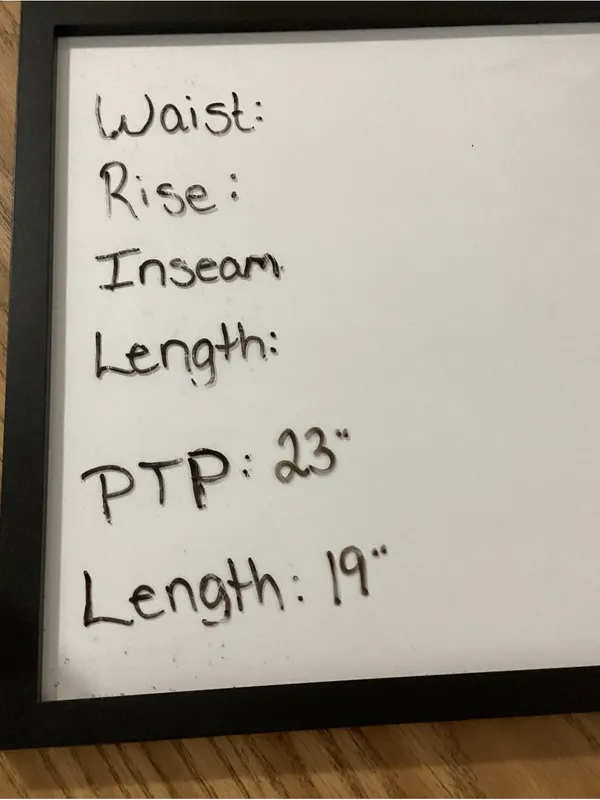 Waist:
Rise:
Inseam
Length:
PTP: 23"
Length: 19"